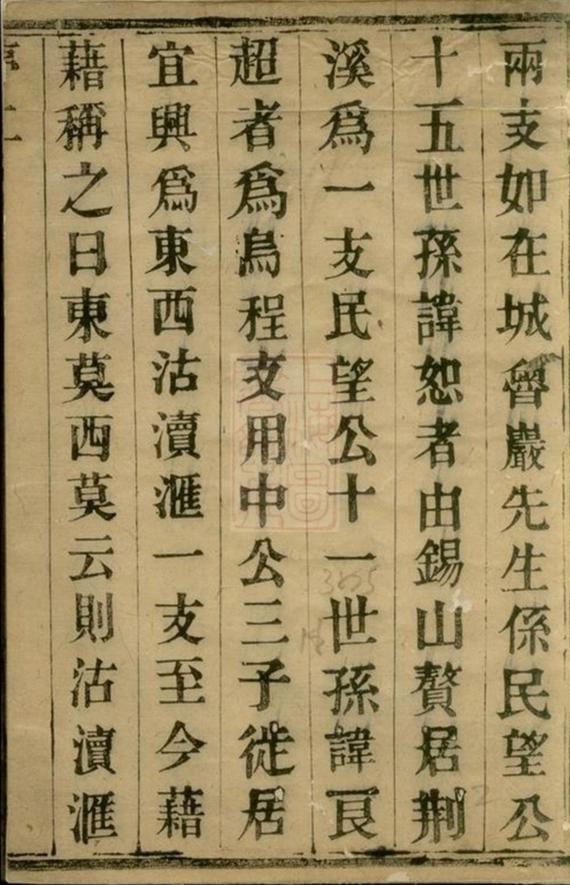 兩支如在城曾巖先生係民望公
十五世孫諱恕者由錫山贅居荆
溪爲一支民望公十一世孫諱艮
超者爲烏程支用中公三子徙居
宜興爲東西沽瀆滙一支至今藉
藉稱之曰東莫西莫云則沽瀆滙